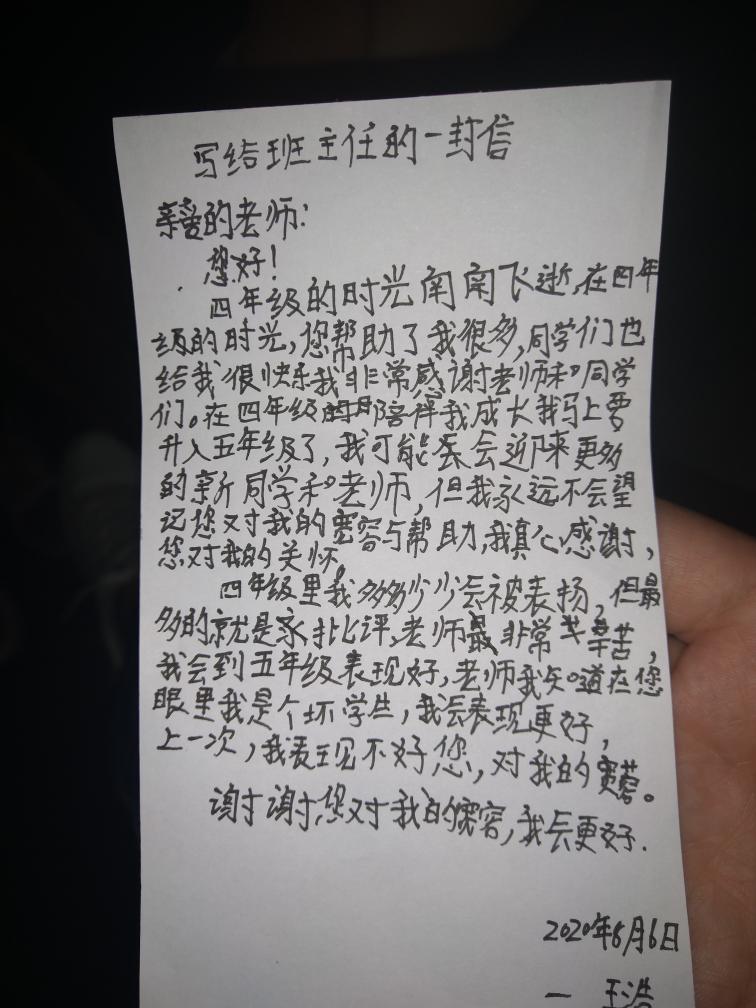 写给班主任的一封信
亲爱的老师:
您好!
四年级的时光 飞逝,在四年
级的时光,您帮助了我很多,同学们也
给我很快乐我非常感谢老师和同学
们。在四年级的 陪伴我成长我马上要
升入五年级了,我可能 会迎来更多
的新同学和老师,但我永远不会望
记您对我的宽容与帮助,我真心感谢,
您对我的关怀,
四年级里我多多少少会被表扬,但最
多的就是 批评,老师最非常 辛苦,
我会到五年级表现好,老师我知道在您
眼里我是个坏学生,我会表现更好,
上一次,我表现不好您,对我的宽容。
谢谢您对我的宽容,我会更好.
2020年 月6日
一 王浩